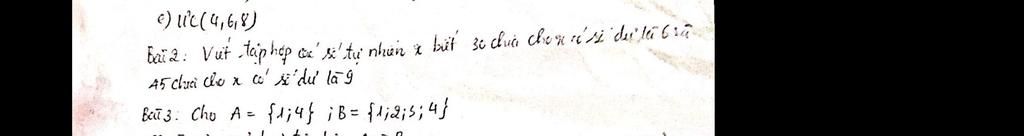 c) ƯC(4,6,8)
Bài 2: Viết tập hợp các số tự nhiên x biết 30 chia cho x có số dư là 6 và
45 chia cho x có số dư là 9
Bài 3: Cho A = {1;4} ; B = {1;2;3;4}